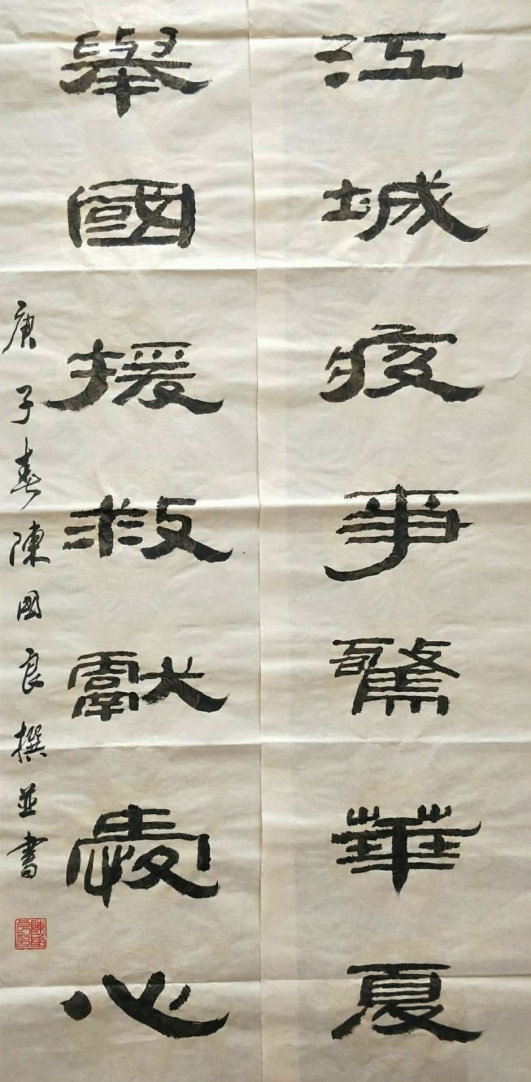 江城疫事驚華夏
舉國援救獻愛心
庚子春陳國良撰並書